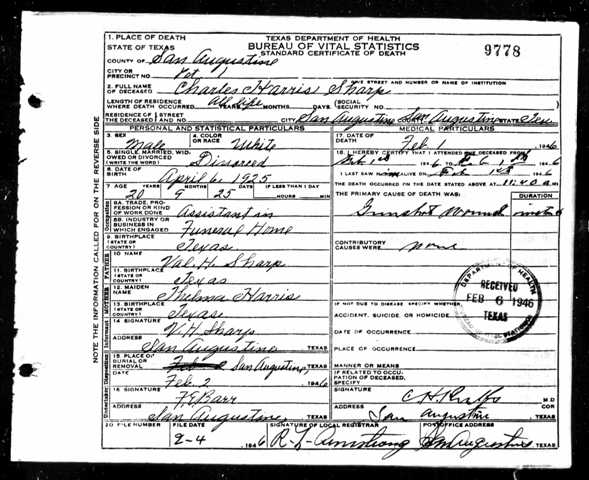 1. PLACE OF DEATH
STATE OF TEXAS
TEXAS DEPARTMENT OF HEALTH
BUREAU OF VITAL STATISTICS
STANDARD CERTIFICATE OF DEATH
9778
COUNTY OF San Augustine
CITY OR PRECINCT NO.
GIVE STREET AND NUMBER OR NAME OF INSTITUTION
2. FULL NAME OF DECEASED Charles Harris Sharp
LENGTH OF RESIDENCE WHERE DEATH OCCURRED All life YEARS MONTHS DAYS (SOCIAL SECURITY NO.
RESIDENCE OF THE DECEASED STREET AND NO. CITY San Augustine San Augustine STATE Tex
PERSONAL AND STATISTICAL PARTICULARS
MEDICAL PARTICULARS
3. SEX Male
4. COLOR OR RACE White
17. DATE OF DEATH Feb 1 1946
5. SINGLE, MARRIED, WIDOWED OR DIVORCED (WRITE THE WORD) Divorced
18. I HEREBY CERTIFY THAT I ATTENDED THE DECEASED FROM
Feb 1st 1946 TO Feb 1st 1946
6. DATE OF BIRTH April 6, 1925
I LAST SAW ALIVE ON Feb 1st 1946
7. AGE YEARS MONTHS DAYS IF LESS THAN 1 DAY
20 9 25 HOURS MIN
THE DEATH OCCURRED ON THE DATE STATED ABOVE AT 11:40 M.
8A. TRADE, PROFESSION OR KIND OF WORK DONE Assistant in
THE PRIMARY CAUSE OF DEATH WAS:
DURATION
Gunshot wound
8B. INDUSTRY OR BUSINESS IN WHICH ENGAGED Funeral Home
9. BIRTHPLACE (STATE OR COUNTRY) Texas
CONTRIBUTORY CAUSES WERE: none
10. NAME Val. H. Sharp
11. BIRTHPLACE (STATE OR COUNTRY) Texas
12. MAIDEN NAME Thelma Harris
13. BIRTHPLACE (STATE OR COUNTRY) Texas
IF NOT DUE TO DISEASE SPECIFY WHETHER:
ACCIDENT, SUICIDE OR HOMICIDE
14. SIGNATURE V. H. Sharp
DATE OF OCCURRENCE
ADDRESS San Augustine, TEXAS
PLACE OF OCCURRENCE
15. PLACE OF BURIAL OR REMOVAL San Augustine, TEXAS
MANNER OR MEANS
DATE Feb. 2 1946
IF RELATED TO OCCUPATION OF DECEASED, SPECIFY
16. SIGNATURE F E Barr
SIGNATURE
M.D. COR
ADDRESS San Augustine, TEXAS
ADDRESS San Augustine, TEXAS
20. FILE NUMBER
FILE DATE 2-4 1946
SIGNATURE OF LOCAL REGISTRAR
POST OFFICE ADDRESS
Armstrong San Augustine TEXAS
DEPARTMENT OF HEALTH
RECEIVED
FEB 6 1946
TEXAS
NOTE THE INFORMATION CALLED FOR ON THE REVERSE SIDE
Occupation
FATHER
MOTHER
Informant